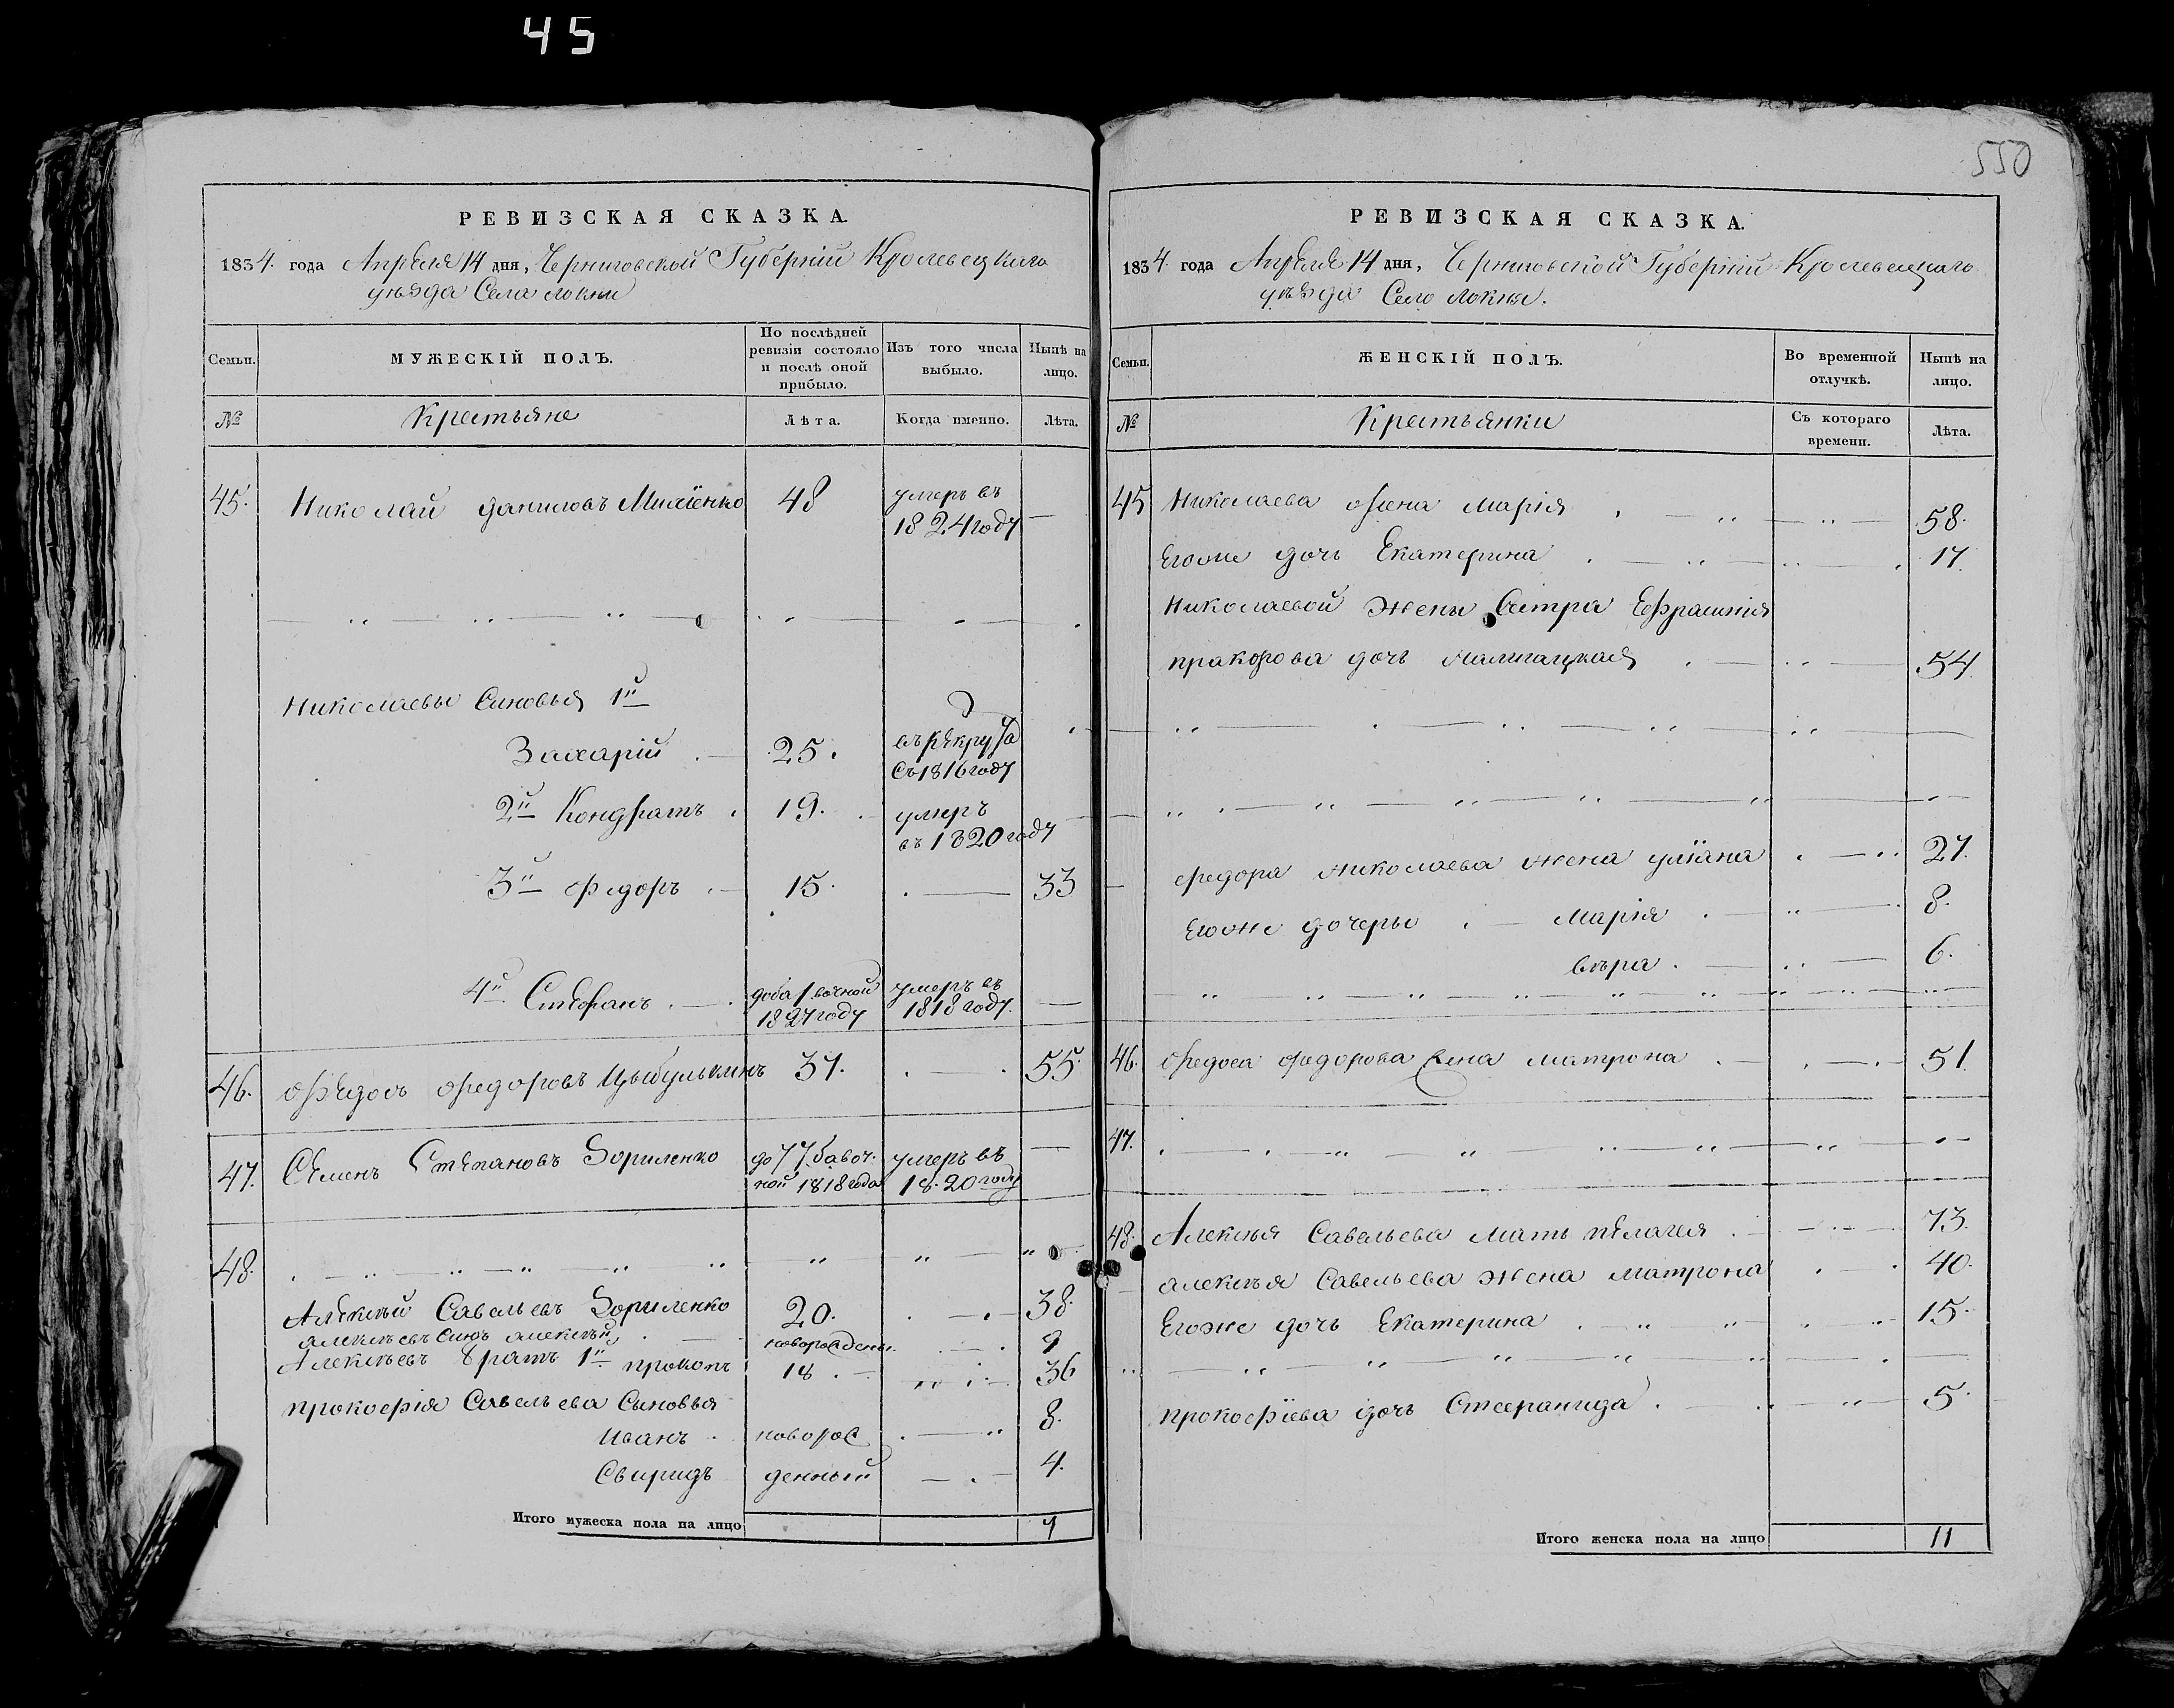 45
550
РЕВИЗСКАЯ СКАЗКА.
1834. года Апреля 14 дня, Черниговской Губерніи Кролевецкаго
уѣзда Села Локни
Семьи. МУЖЕСКІЙ ПОЛЪ. По послѣдней ревизіи состояло и послѣ оной прибыло. Изъ того числа выбыло. Нынѣ на лицо.
№ Крестьяне Лѣта. Когда именно. Лѣта.
45. Николай Даниловъ 48 умеръ въ 1824 году —
Николаевы Синовья 1й
Захарій 25. въ рекрута съ 1816 году
2й Кондратъ 19. умеръ въ 1820 году
3й Федоръ 15. 33
4й Стефанъ 1827 году умеръ въ 1818 году —
46. Федосъ Федоровъ Цыбулькинъ 37. 55.
47. Семенъ Степановъ Зориленко до 77 бавоч- ной 1818 года умеръ въ 1820 году —
48.
Алексѣй Савельевъ Зориленко 20. 38.
Алексѣевъ Синъ Алексѣй новорожденны. 9
Алексѣевъ братъ 1й Прокопъ 18 36
Прокофія Савельева Сыновья
Иванъ новорож 8.
Свиридъ денный 4.
Итого мужеска пола на лицо 7
РЕВИЗСКАЯ СКАЗКА.
1834 года Апреля 14 дня, Черниговской Губерніи Кролевецкаго
уѣзда Село Локня.
Семьи. ЖЕНСКІЙ ПОЛЪ. Во временной отлучкѣ. Нынѣ на лицо.
№ Крестьянки Съ котораго времени. Лѣта.
45 Николаева жена Марія 58.
Егоже дочь Екатерина 17.
Николаевой жены Сестра Ефрасинія
Пракофова дочь 54.
Федора Николаева жена Уліяна 27.
Егоже дочеры Марія 8.
Вѣра 6.
46. Федоса Федорова жена Матрона 51.
47.
48. Алексѣя Савельева мать Пелагея 73.
Алексѣя Савельева жена Матрона 40.
Егоже дочь Екатерина 15.
Прокофіева дочь Стефанида 5.
Итого женска пола на лицо 11